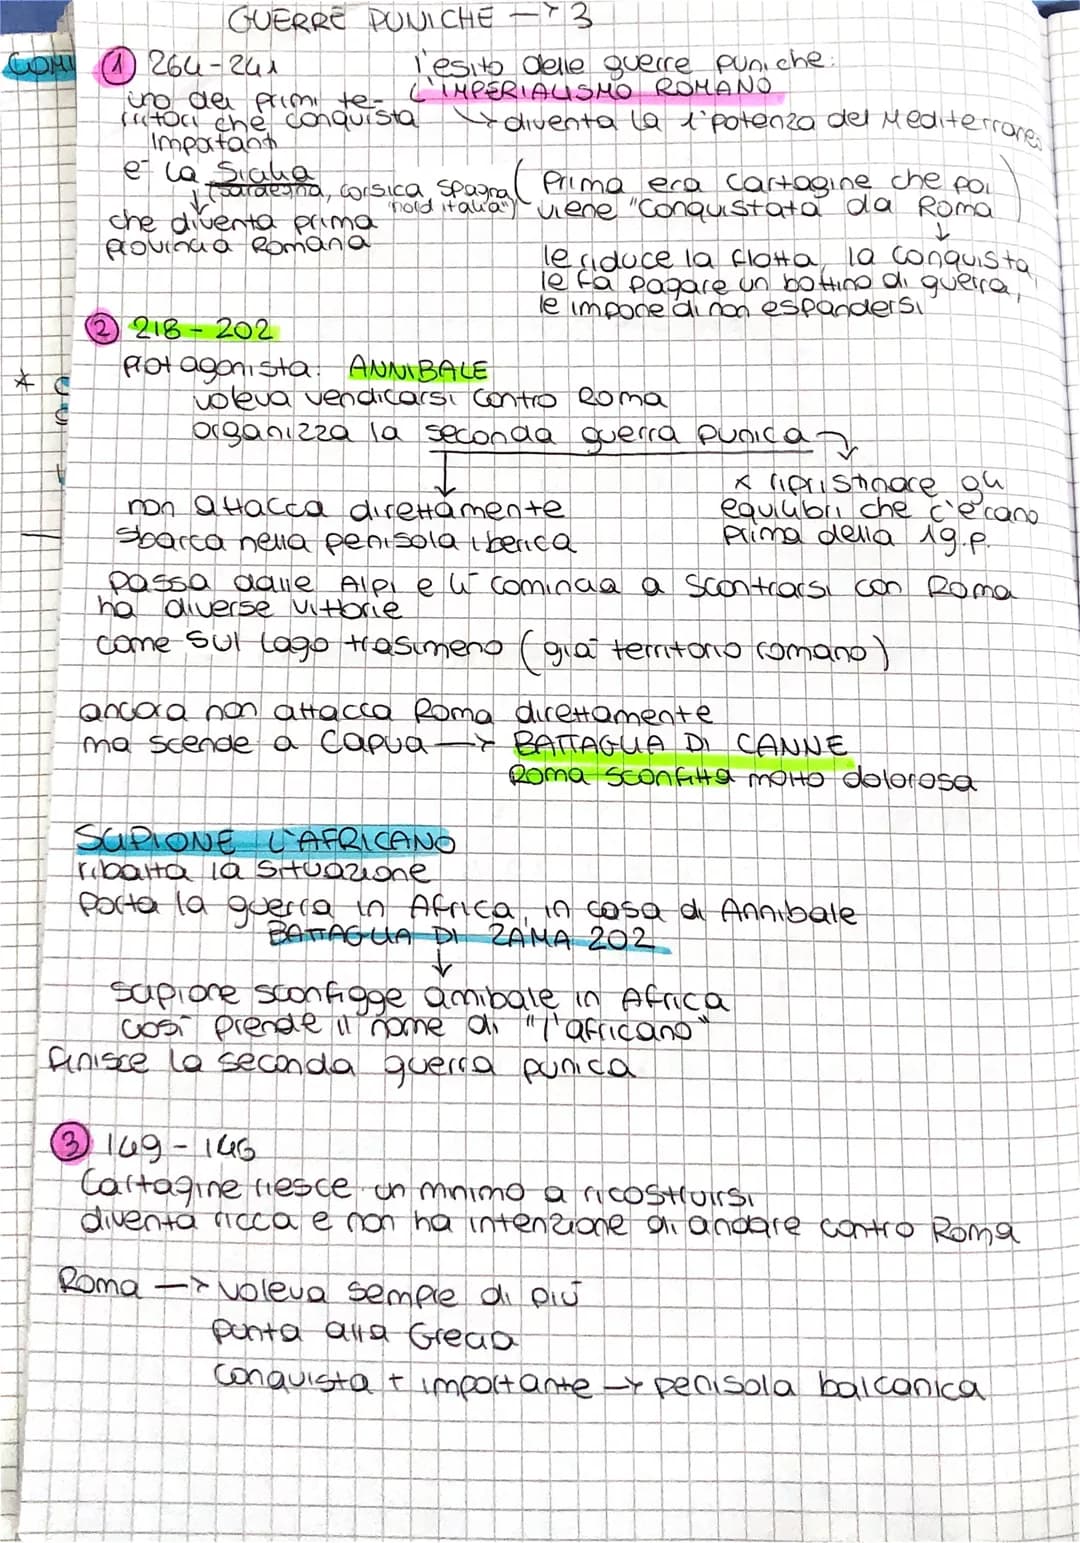 GUERRE PUNICHE → 3
COMI
① 264-241
uno dei primi te-
rritori che conquista
importanti
è la Sicilia
(Sardegna, Corsica, Spagna
"nord italia")
che diventa prima
provincia Romana
l'esito delle guerre puniche:
L'IMPERIALISMO ROMANO
↳ diventa la 1ª potenza del Mediterraneo
(Prima era Cartagine che poi
viene "conquistata" da Roma)
↓
le riduce la flotta, la conquista,
le fa pagare un bottino di guerra,
le impone di non espandersi
② 218-202
protagonista: ANNIBALE
voleva vendicarsi contro Roma
organizza la seconda guerra punica
x ripristinare gli
equilibri che c'erano
prima della 1 g.p.
non attacca direttamente
sbarca nella penisola iberica
passa dalle Alpi e lì comincia a scontrarsi con Roma
ha diverse vittorie
come sul lago trasimeno (già territorio romano)
ancora non attacca Roma direttamente
ma scende a Capua → BATTAGLIA DI CANNE
Roma sconfitta molto dolorosa
SCIPIONE L'AFRICANO
ribalta la situazione
porta la guerra in Africa, in casa di Annibale
BATTAGLIA DI ZAMA 202
↓
scipione sconfigge annibale in Africa
così prende il nome di "l'africano"
finisce la seconda guerra punica
③ 149-146
Cartagine riesce un minimo a ricostruirsi
diventa ricca e non ha intenzione di andare contro Roma
Roma → voleva sempre di più
punta alla Grecia
conquista + importante → penisola balcanica